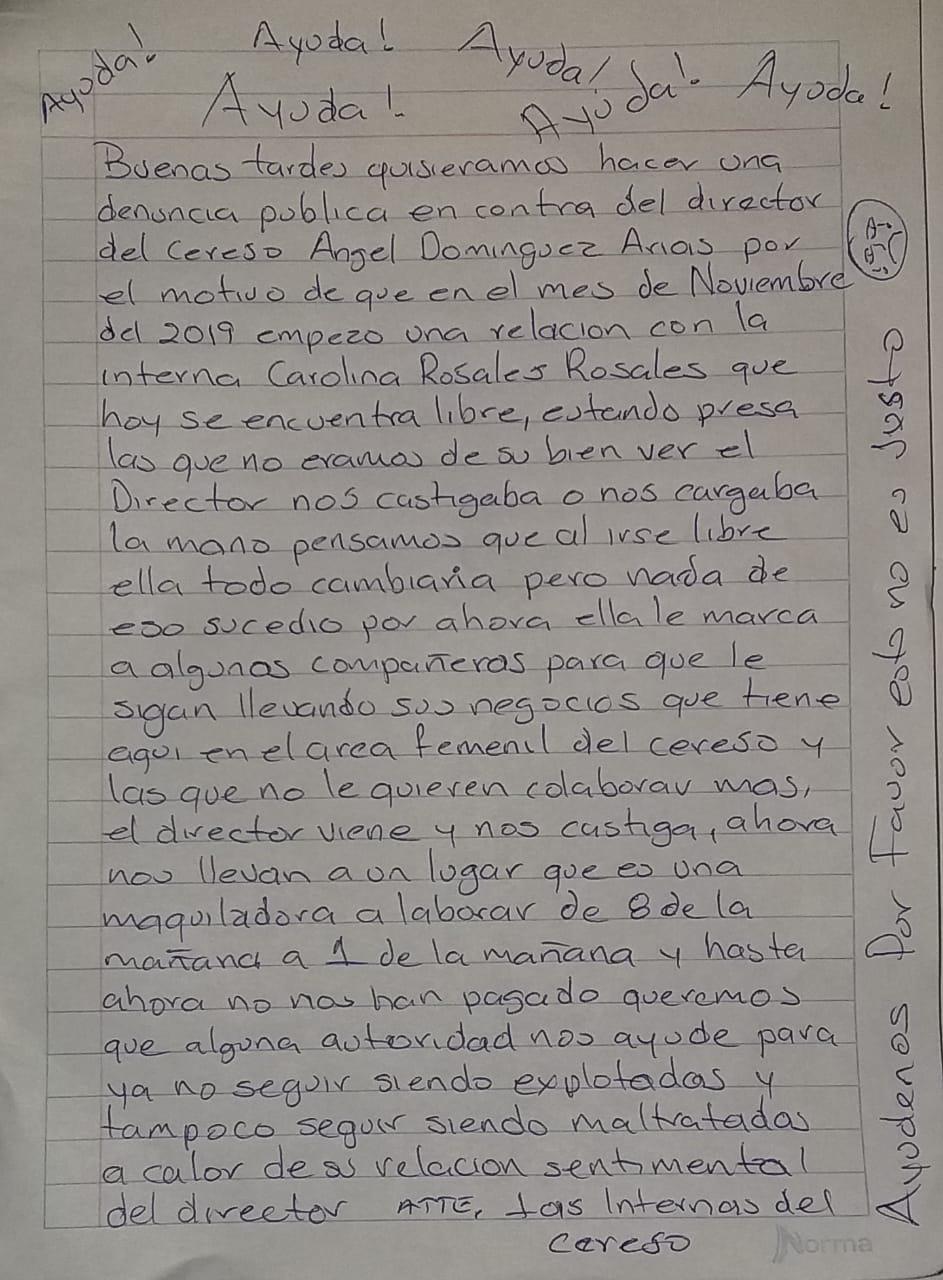 Ayuda! Ayuda! Ayuda! Ayuda! Ayuda! Ayuda!
Buenas tardes quisieramos hacer una
denuncia publica en contra del director
del Cereso Angel Dominguez Arias por
el motivo de que en el mes de Noviembre
del 2019 empezo una relacion con la
interna Carolina Rosales Rosales que
hoy se encuentra libre, estando presa
las que no eramos de su bien ver el
Director nos castigaba o nos cargaba
la mano pensamos que al irse libre
ella todo cambiaria pero nada de
eso sucedio por ahora ella le marca
a algunas compañeras para que le
sigan llevando sus negocios que tiene
aqui en el area femenil del cereso y
las que no le quieren colaborar mas,
el director viene y nos castiga, ahora
nos llevan a un lugar que es una
maquiladora a laborar de 8 de la
mañana a 1 de la mañana y hasta
ahora no nos han pagado queremos
que alguna autoridad nos ayude para
ya no seguir siendo explotadas y
tampoco seguir siendo maltratadas
a calor de relacion sentimental
del director ATTE, Las Internas del
Cereso
Norma
Ayudenos Por Favor esto no es Justo